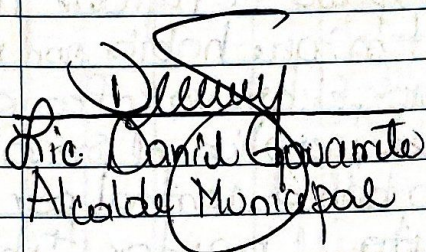 Lic. Daniel Govarrite
Alcalde Municipal